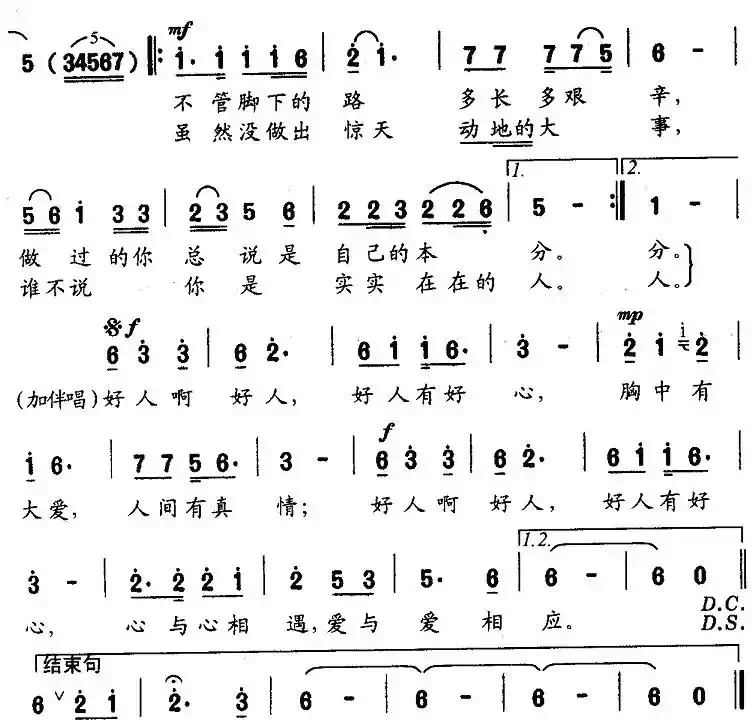 5 mf
5 (34567) ‖: 1· 1 1 1 6 | 2 1· | 7 7 7 7 5 | 6 -
不管脚下的路 多长多艰 辛,
虽然没做出 惊天 动地的大 事,
1. 2.
5 6 1 3 3 | 2 3 5 6 | 2 2 3 2 2 6 | 5 - :‖ 1 -
做过的你 总说是 自己的本 分。 分。
谁不说 你是 实实在在的 人。 人。
f mp
6 3 3 | 6 2· | 6 1 1 6· | 3 - | 2 1 i 2
(加伴唱)好人啊 好人, 好人有好 心, 胸中有
f
1 6· | 7 7 5 6· | 3 - | 6 3 3 | 6 2· | 6 1 1 6·
大爱, 人间有真 情; 好人啊 好人, 好人有好
1.2.
3 - | 2· 2 2 1 | 2 5 3 | 5· 6 | 6 - | 6 0 ‖
D.C.
心, 心与心相 遇,爱与 爱相 应。 D.S.
结束句
6 ∨ 2 1 | 2· 3 | 6 - | 6 - | 6 - | 6 0 ‖